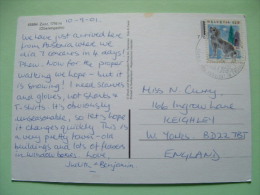 10-9-01.
We have just arrived here
from Pas where we
did 7 in 4 days!
Phew. Now for the proper
walking we hope - but it
is snowing! I need sleeves
and gloves, not shorts &
T-shirts. It's obviously
unseasonable, so let's hope
it changes quickly. This is
a very pretty town - old
buildings and lots of flowers
in window boxes. Love,
Judith & Benjamin
HELVETIA
Miss N. 
166 Ingrow Lane
KEIGHLEY
W. Yorks BD22 7BT
ENGLAND